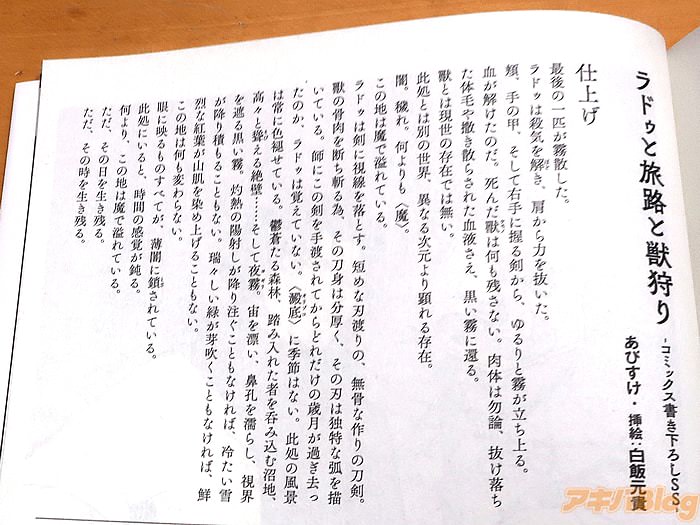 ラドゥと旅路と獣狩り
-コミックス書き下ろしSS-
あびすけ・挿絵:白飯元貴
仕上げ
最後の一匹が霧散した。
ラドゥは殺気を解き、肩から力を抜いた。
頬、手の甲、そして右手に握る剣から、ゆるりと霧が立ち上る。
血が解けたのだ。死んだ獣は何も残さない。肉体は勿論、抜け落ち
た体毛や撒き散らされた血液さえ、黒い霧に還る。
獣とは現世の存在では無い。
此処とは別の世界、異なる次元より顕れる存在。
闇。穢れ。何よりも〈魔〉。
この地は魔で溢れている。
ラドゥは剣に視線を落とす。短めな刃渡りの、無骨な作りの刀剣。
獣の骨肉を断ち斬る為、その刀身は分厚く、その刃は独特な弧を描
いている。師にこの剣を手渡されてからどれだけの歳月が過ぎ去っ
たのか、ラドゥは覚えていない。〈澱底〉に季節はない。此処の風景
は常に色褪せている。鬱蒼たる森林、踏み入れた者を呑み込む沼地、
高々と聳える絶壁……そして夜霧。宙を漂い、鼻孔を濡らし、視界
を遮る黒い霧。灼熱の陽射しが降り注ぐこともなければ、冷たい雪
が降り積もることもない。瑞々しい緑が芽吹くこともなければ、鮮
烈な紅葉が山肌を染め上げることもない。
この地は何も変わらない。
眼に映るものすべてが、薄闇に鎖されている。
此処にいると、時間の感覚が鈍る。
何より、この地は魔で溢れている。
ただ、その日を生き残る。
ただ、その時を生き残る。
アキバBlog